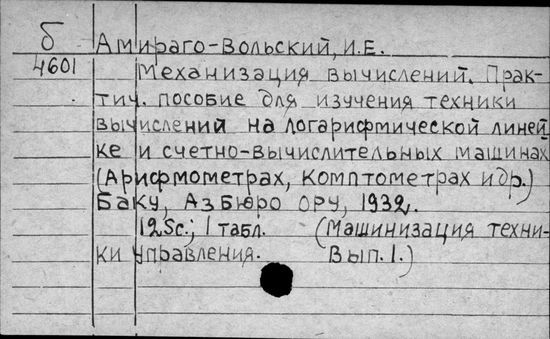 б Амираго-Вольский, И.Е.
4601 Механизация вычислений. Прак-
тич. пособие для изучения техники
вычислений на логарифмической линей-
ке и счетно-вычислительных машинах
(Арифмометрах, комптометрах и др.)
Баку, Азбюро ОРУ, 1932.
125с.; 1 табл. (Машинизация техни-
ки управления. Вып. 1.)